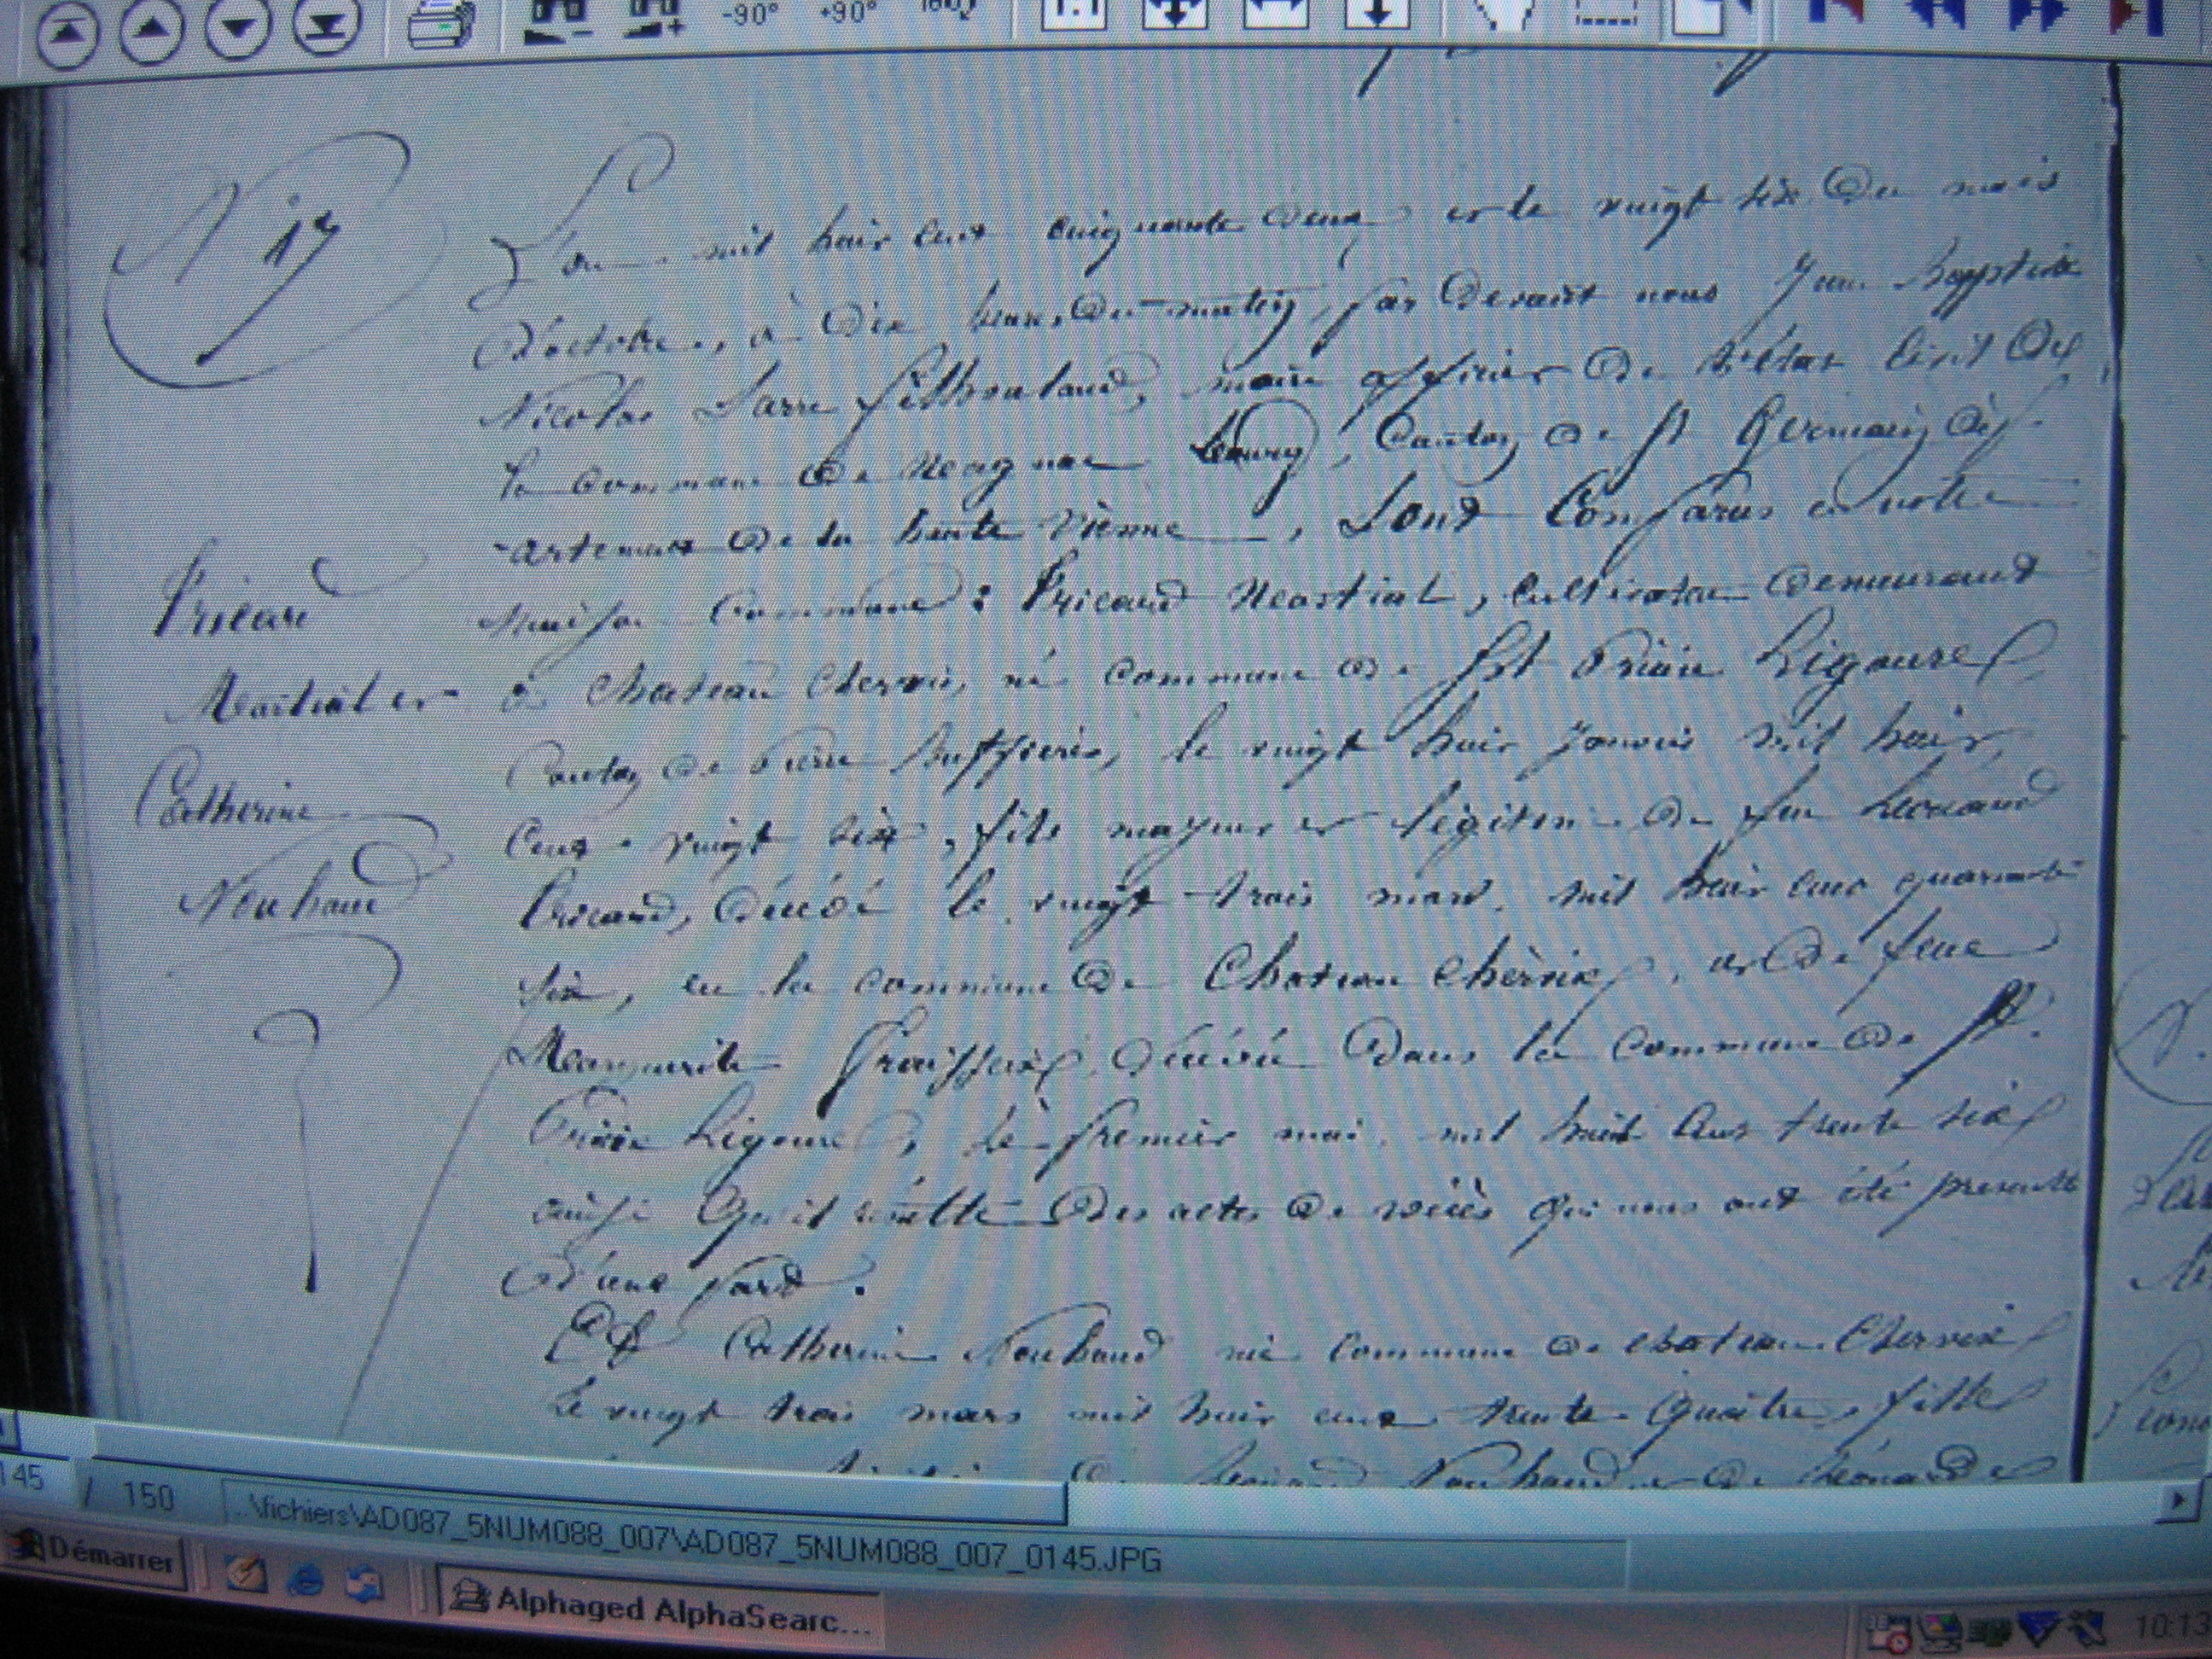 -90° +90° 180
1:1
N° 17
L'an mil huit cent cinquante deux et le vingt six du mois
d'octobre, à dix heures du matin, par devant nous Jean Baptiste
Nicolas Sarre filhoulaud, maire officier de l'état civil de
la commune de Magnac Bourg, Canton de St Germain dép
-artement de la haute Vienne, Sont Comparus en notre
Pricaud
maison Commune : Pricaud Martial, Cultivateur demeurant
Martial et
à Chateau Chervix, né commune de St Priest Ligoure
Canton de Pierre Buffière, le vingt huit janvier mil huit
Catherine
Cent vingt six, fils majeur et légitime de feu Léonard
Nouhaud
Pricaud, décédé le vingt trois mars mil huit cent quarante
six, en la commune de Chateau Chèrvix, et de feue
Marguerite décédée dans la commune de St
Priest Ligoure, le premier mai mil huit cent trente six
ainsi qu'il résulte des actes de décès qui nous ont été presenté
d'une part.
Et Catherine Nouhaud née commune de chateau Chervix
le vingt trois mars mil huit cent trente quatre, fille
de Léonard Nouhaud et de Léonarde
145 / 150 ..\fichiers\AD087_5NUM088_007\AD087_5NUM088_007_0145.JPG
Démarrer Alphaged AlphaSearc... 10:13